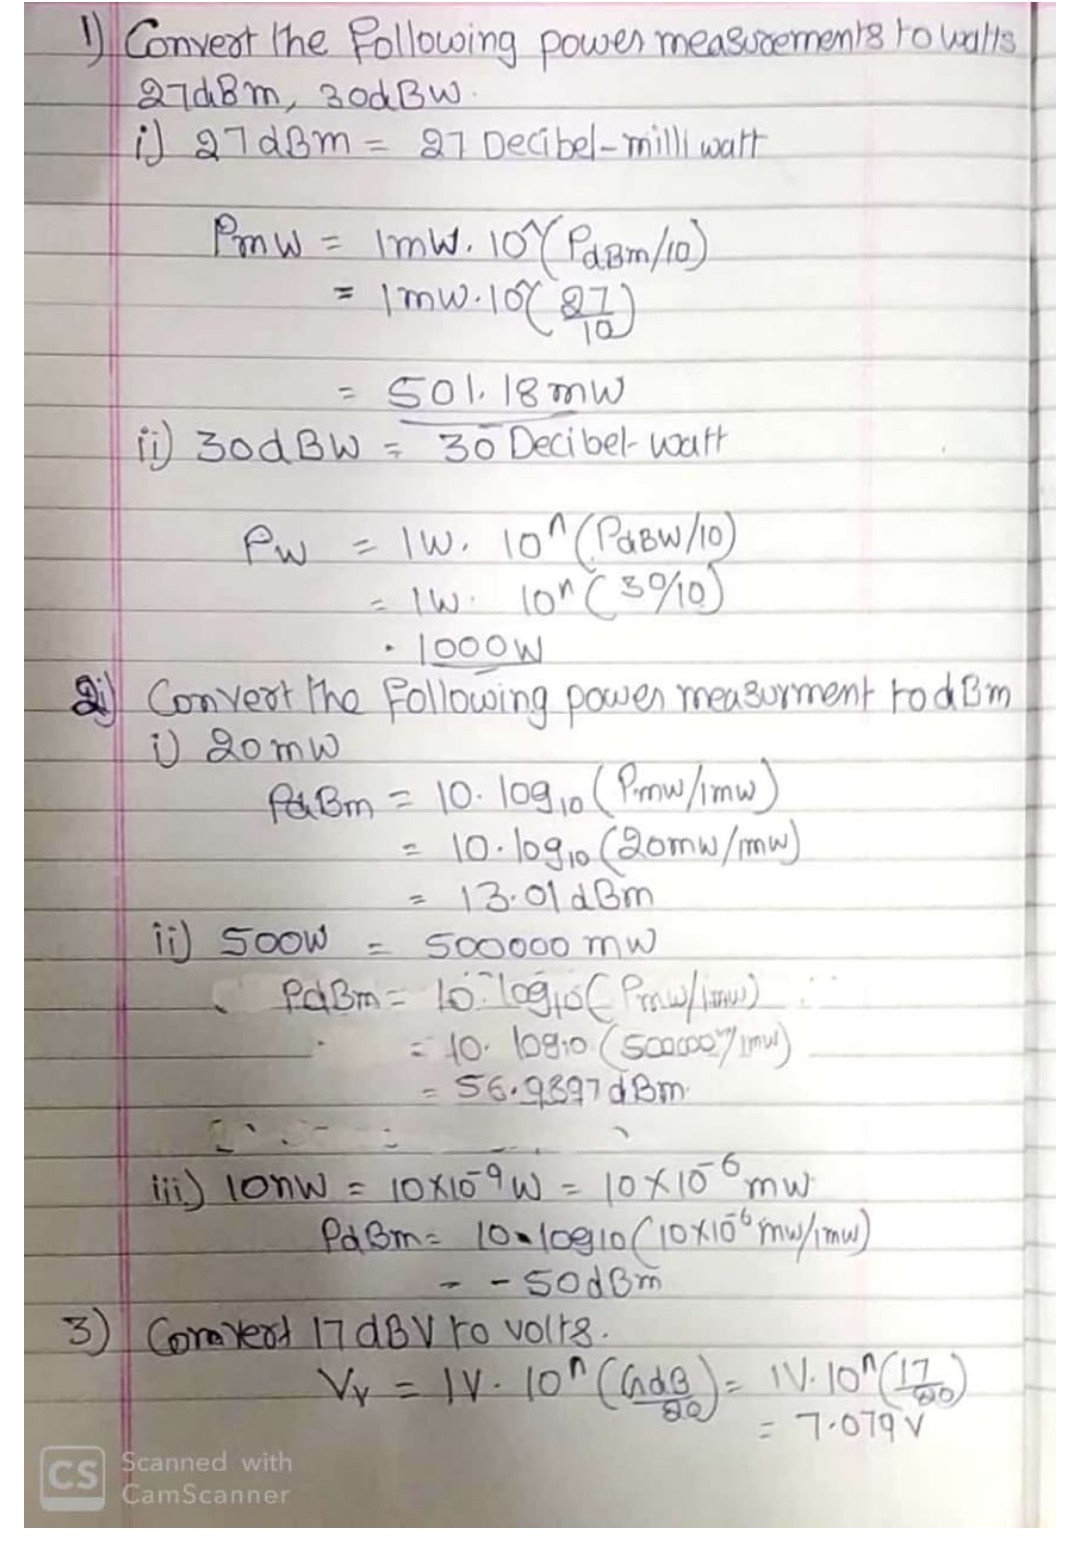 1) Convert the Following power measurements to watts
27dBm, 30dBW.
i) 27dBm = 27 Decibel-milliwatt
PmW = 1mW. 10^(PdBm/10)
= 1mW.10^(27/10)
= 501.18mW
ii) 30dBW = 30 Decibel-watt
PW = 1W. 10^(PdBW/10)
= 1W. 10^(30/10)
. 1000W
2) Convert the Following power measurment to dBm
i) 20mW
PdBm = 10. log10 (Pmw/1mw)
= 10.log10 (20mw/mw)
= 13.01dBm
ii) 500W = 500000 mW
PdBm = 10. log10 (Pmw/1mw)
= 10. log10 (/1mw)
= 56.9897dBm
iii) 10nW = 10×10⁻⁹W = 10×10⁻⁶mw
PdBm = 10.log10(10×10⁻⁶mw/1mw)
= -50dBm
3) Convert 17dBV to volts.
Vv = 1V. 10^(GdB/20) = 1V.10^(17/20)
= 7.079V
CS Scanned with
CamScanner